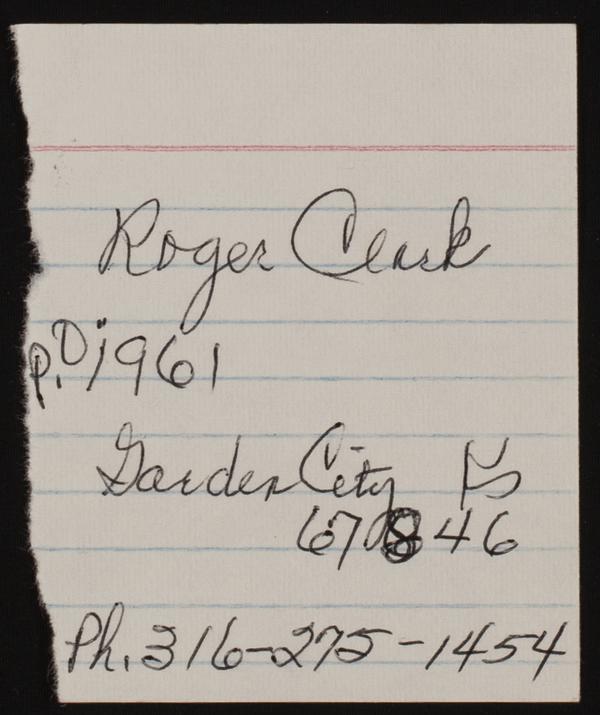 Roger Clark
p.D 1961
Garden City KS
67846
Ph. 316-275-1454